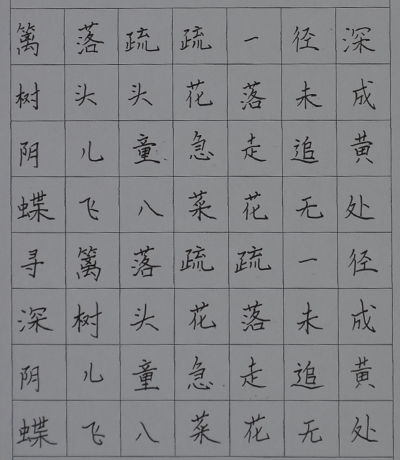 篱落疏疏一径深
树头头花落未成
阴儿童急走追黄
蝶飞八菜花无处
寻篱落疏疏一径
深树头花落未成
阴儿童急走追黄
蝶飞八菜花无处